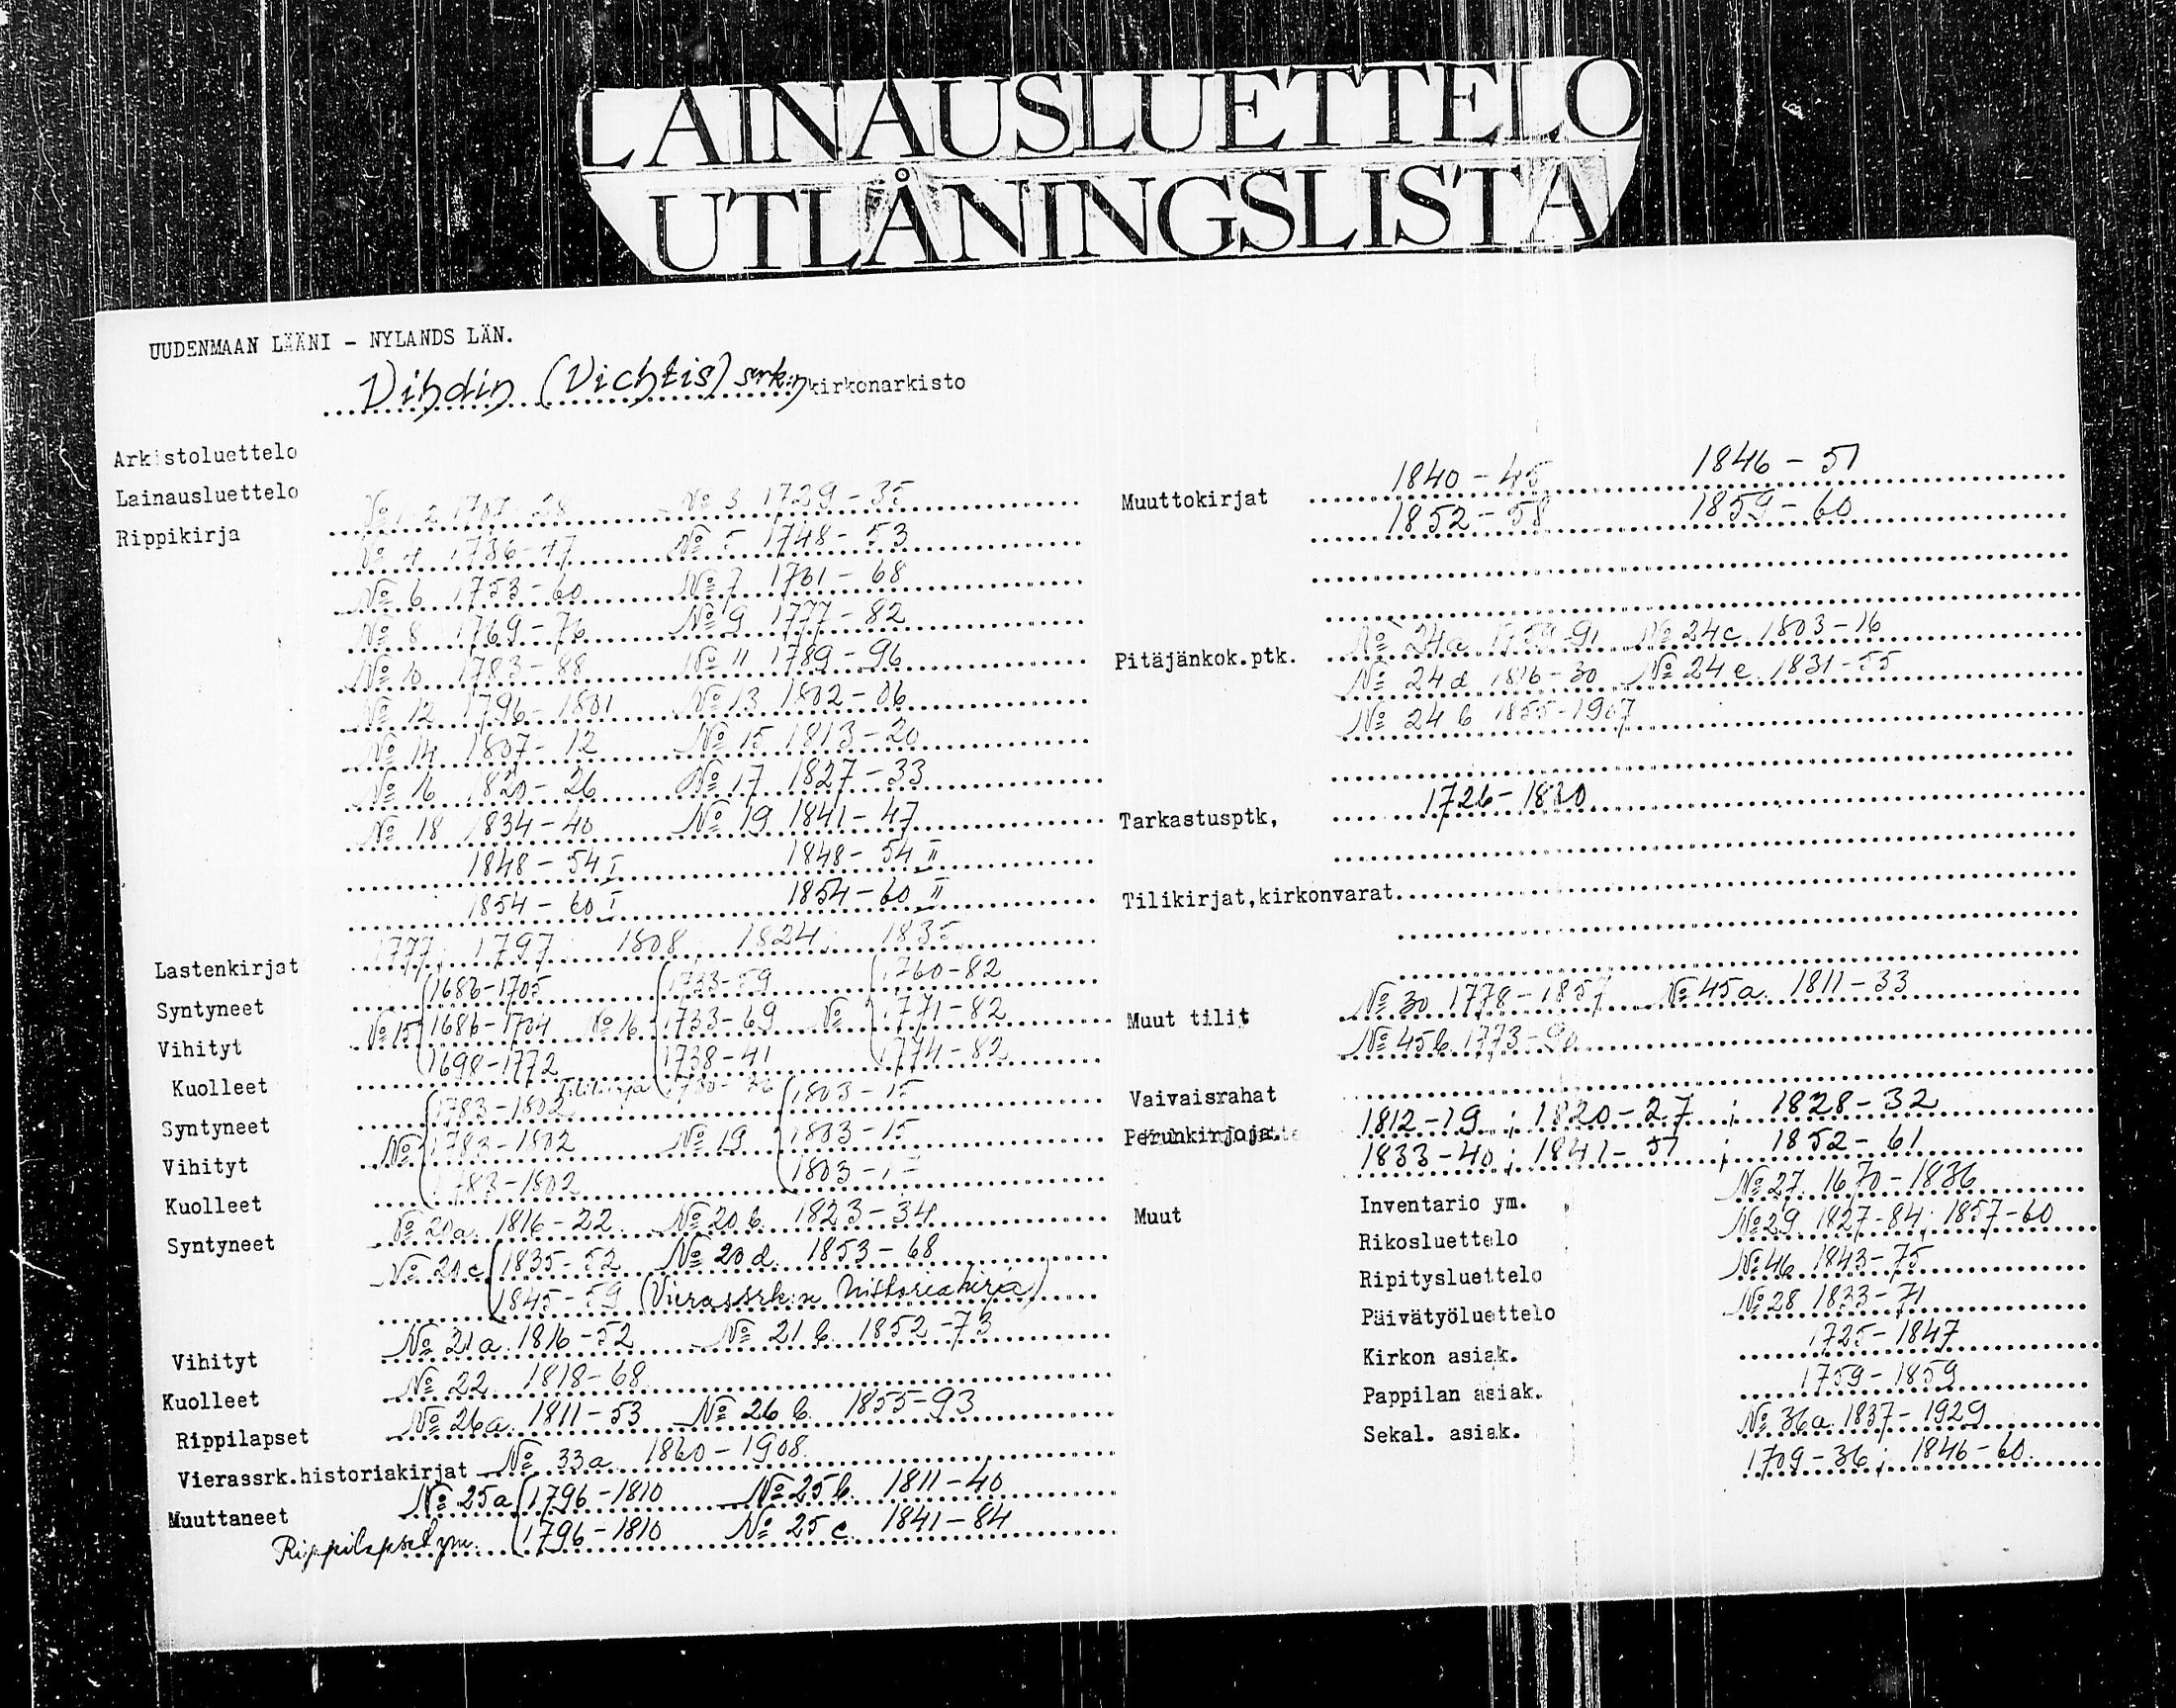 LAINAUSLUETTELO
UTLÅNINGSLISTA
UUDENMAAN LÄÄNI - NYLANDS LÄN.
Vihdin (Vichtis) srk:n kirkonarkisto
Arkistoluettelo
Lainausluettelo
Rippikirja
№ 3 1729-35
№ 4 1736-47 № 5 1748-53
№ 6 1753-60 № 7 1761-68
№ 8 1769-76 № 9 1777-82
№ 10 1783-88 № 11 1789-96
№ 12 1796-1801 № 13 1802-06
№ 14 1807-12 № 15 1813-20
№ 16 1820-26 № 17 1827-33
№ 18 1834-40 № 19 1841-47
1848-54 I 1848-54 II
1854-60 I 1854-60 II
Lastenkirjat 1777; 1797; 1808; 1824; 1835
Syntyneet 1686-1705 1733-59 1760-82
Vihityt № 15 1686-1704 № 16 1733-69 № 1771-82
Kuolleet 1698-1772 1738-41 1774-82
Tilikirja 1730-36
Syntyneet 1783-1802 1803-15
Vihityt № 1783-1802 № 19 1803-15
Kuolleet 1783-1802 1803-
Syntyneet № 20a 1816-22 № 20b 1823-34
№ 20c 1835-52 № 20d 1853-68
1845-59 (Vierassrk:n historiakirja)
Vihityt № 21a 1816-52 № 21b 1852-73
Kuolleet № 22 1818-68
Rippilapset № 26a 1811-53 № 26b 1853-93
Vierassrk.historiakirjat № 33a 1860-1908
Muuttaneet № 25a 1796-1810 № 25b 1811-40
Rippilapset ym. 1796-1810 № 25c 1841-84
Muuttokirjat 1840-45 1846-51
1852-58 1859-60
Pitäjänkok.ptk. № 24a № 24c 1803-16
№ 24d 1816-30 № 24e 1831-55
№ 24b 1855-1907
Tarkastusptk, 1726-1830
Tilikirjat,kirkonvarat
Muut tilit № 30 1778-1857 № 45a 1811-33
№ 45b 1773-
Vaivaisrahat
Perunkirjoja 1812-19; 1820-27; 1828-32
1833-40; 1841-51; 1852-61
Muut Inventario ym. № 27 1670-1836
Rikosluettelo № 29 1827-84; 1857-60
Ripitysluettelo № 46 1843-75
Päivätyöluettelo № 28 1833-71
Kirkon asiak. 1725-1847
Pappilan asiak. 1759-1859
Sekal. asiak. № 36a 1837-1929
1709-36; 1846-60